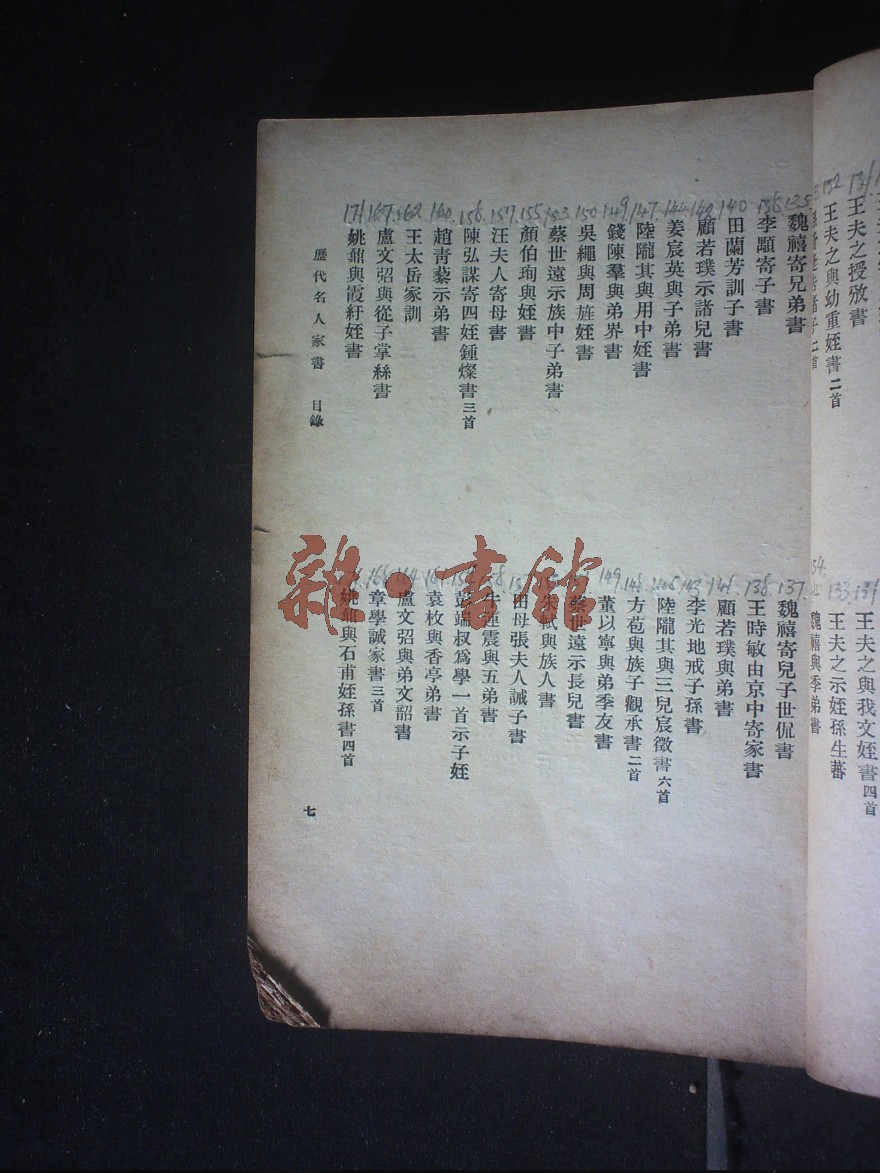 王夫之授攽書
王夫之與我文姪書四首
王夫之與幼重姪書二首
王夫之示姪孫生蕃
魏禧與季弟書
135
魏禧寄兄弟書
137
魏禧寄兒子世侃書
136
李顒寄子書
138
王時敏由京中寄家書
140
田蘭芳訓子書
141
顧若璞與弟書
142
顧若璞示諸兒書
143
李光地戒子孫書
144
姜宸英與子弟書
陸隴其與三兒宸徵書六首
147
陸隴其與用中姪書
148
方苞與族子觀承書二首
149
錢陳羣與弟界書
149
董以寧與弟季友書
150
吳繩與周旌姪書
蔡世遠示長兒書
153
蔡世遠示族中子弟書
朱軾與族人書
155
顏伯珣與姪書
田母張夫人誡子書
157
汪夫人寄母書
牛運震與五弟書
158
陳弘謀寄四姪鍾燦書三首
彭端叔爲學一首示子姪
160
趙青藜示弟書
袁枚與香亭弟書
162
王太岳家訓
164
盧文弨與弟文韶書
167
盧文弨與從子掌絲書
章學誠家書三首
171
姚鼐與霞紆姪書
姚鼐與石甫姪孫書四首
歷代名人家書 目錄
七
雜·書館